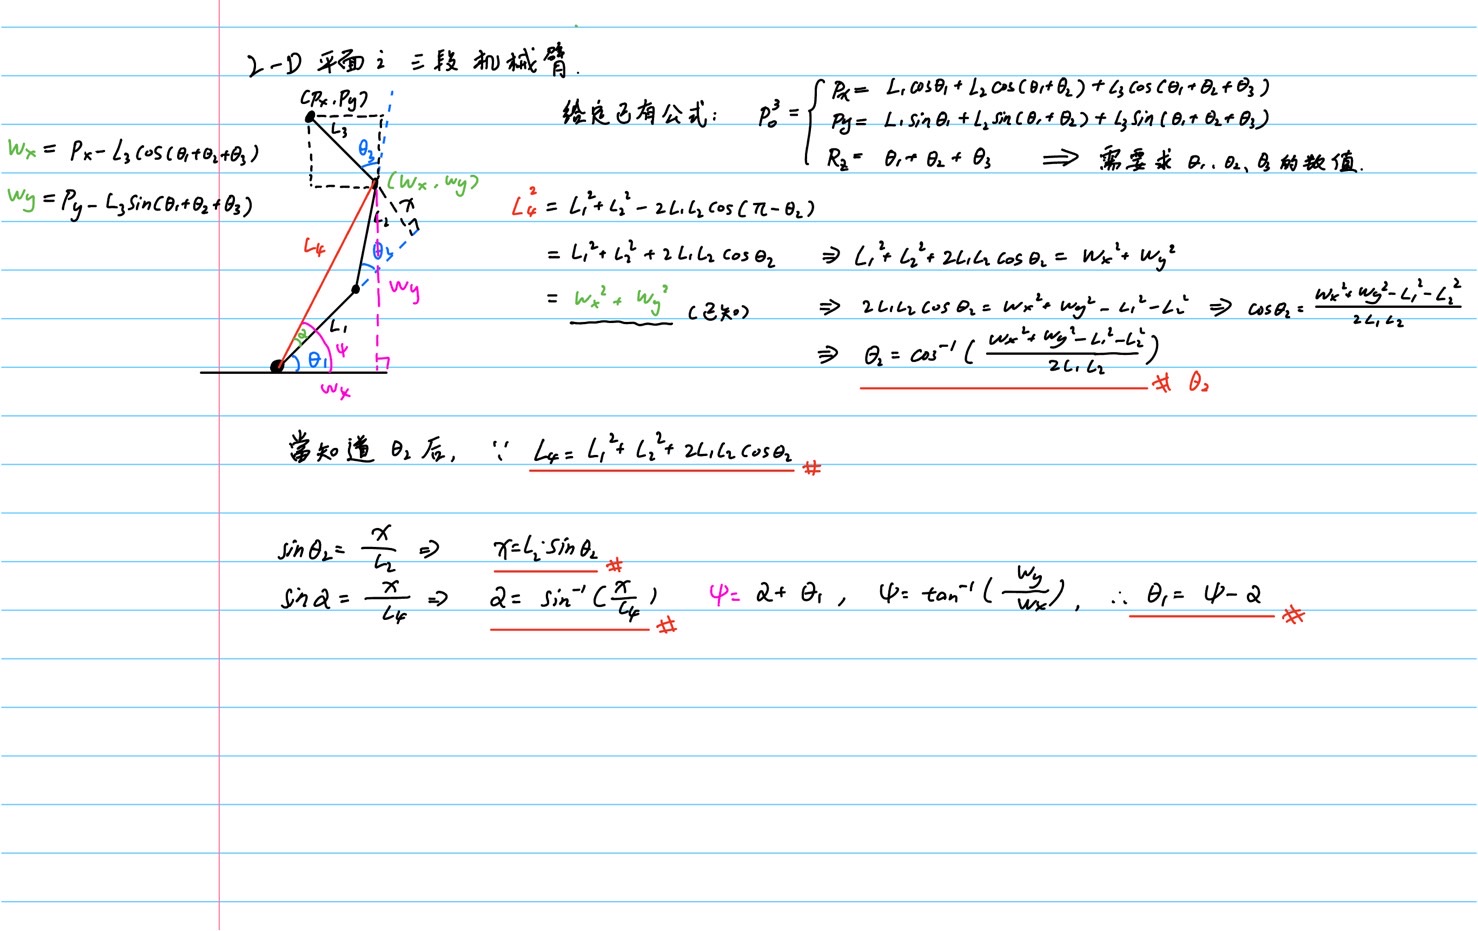 2-D 平面之 三段机械臂.
(Px, Py)
L₃
θ₃
Wx = Px - L₃ cos(θ₁+θ₂+θ₃)
Wy = Py - L₃ sin(θ₁+θ₂+θ₃)
(Wx, Wy)
x
L₂
L₄
Wy
L₁
α
ψ
θ₁
Wx
给定已有公式: P₀³ = { Px = L₁cosθ₁ + L₂cos(θ₁+θ₂) + L₃cos(θ₁+θ₂+θ₃)
Py = L₁sinθ₁ + L₂sin(θ₁+θ₂) + L₃sin(θ₁+θ₂+θ₃)
Rz = θ₁ + θ₂ + θ₃ ⇒ 需要求 θ₁、θ₂、θ₃ 的数值.
L₄² = L₁² + L₂² - 2L₁L₂cos(π-θ₂)
= L₁² + L₂² + 2L₁L₂cosθ₂ ⇒ L₁² + L₂² + 2L₁L₂cosθ₂ = Wx² + Wy²
= Wx² + Wy² (已知) ⇒ 2L₁L₂cosθ₂ = Wx² + Wy² - L₁² - L₂² ⇒ cosθ₂ = (Wx² + Wy² - L₁² - L₂²) / 2L₁L₂
⇒ θ₂ = cos⁻¹( (Wx² + Wy² - L₁² - L₂²) / 2L₁L₂ ) # θ₂
當知道 θ₂ 后, ∵ L₄ = L₁² + L₂² + 2L₁L₂cosθ₂ #
sinθ₂ = x / L₂ ⇒ x = L₂·sinθ₂ #
sinα = x / L₄ ⇒ α = sin⁻¹(x / L₄) # ψ = α + θ₁, ψ = tan⁻¹(Wy / Wx), ∴ θ₁ = ψ - α #